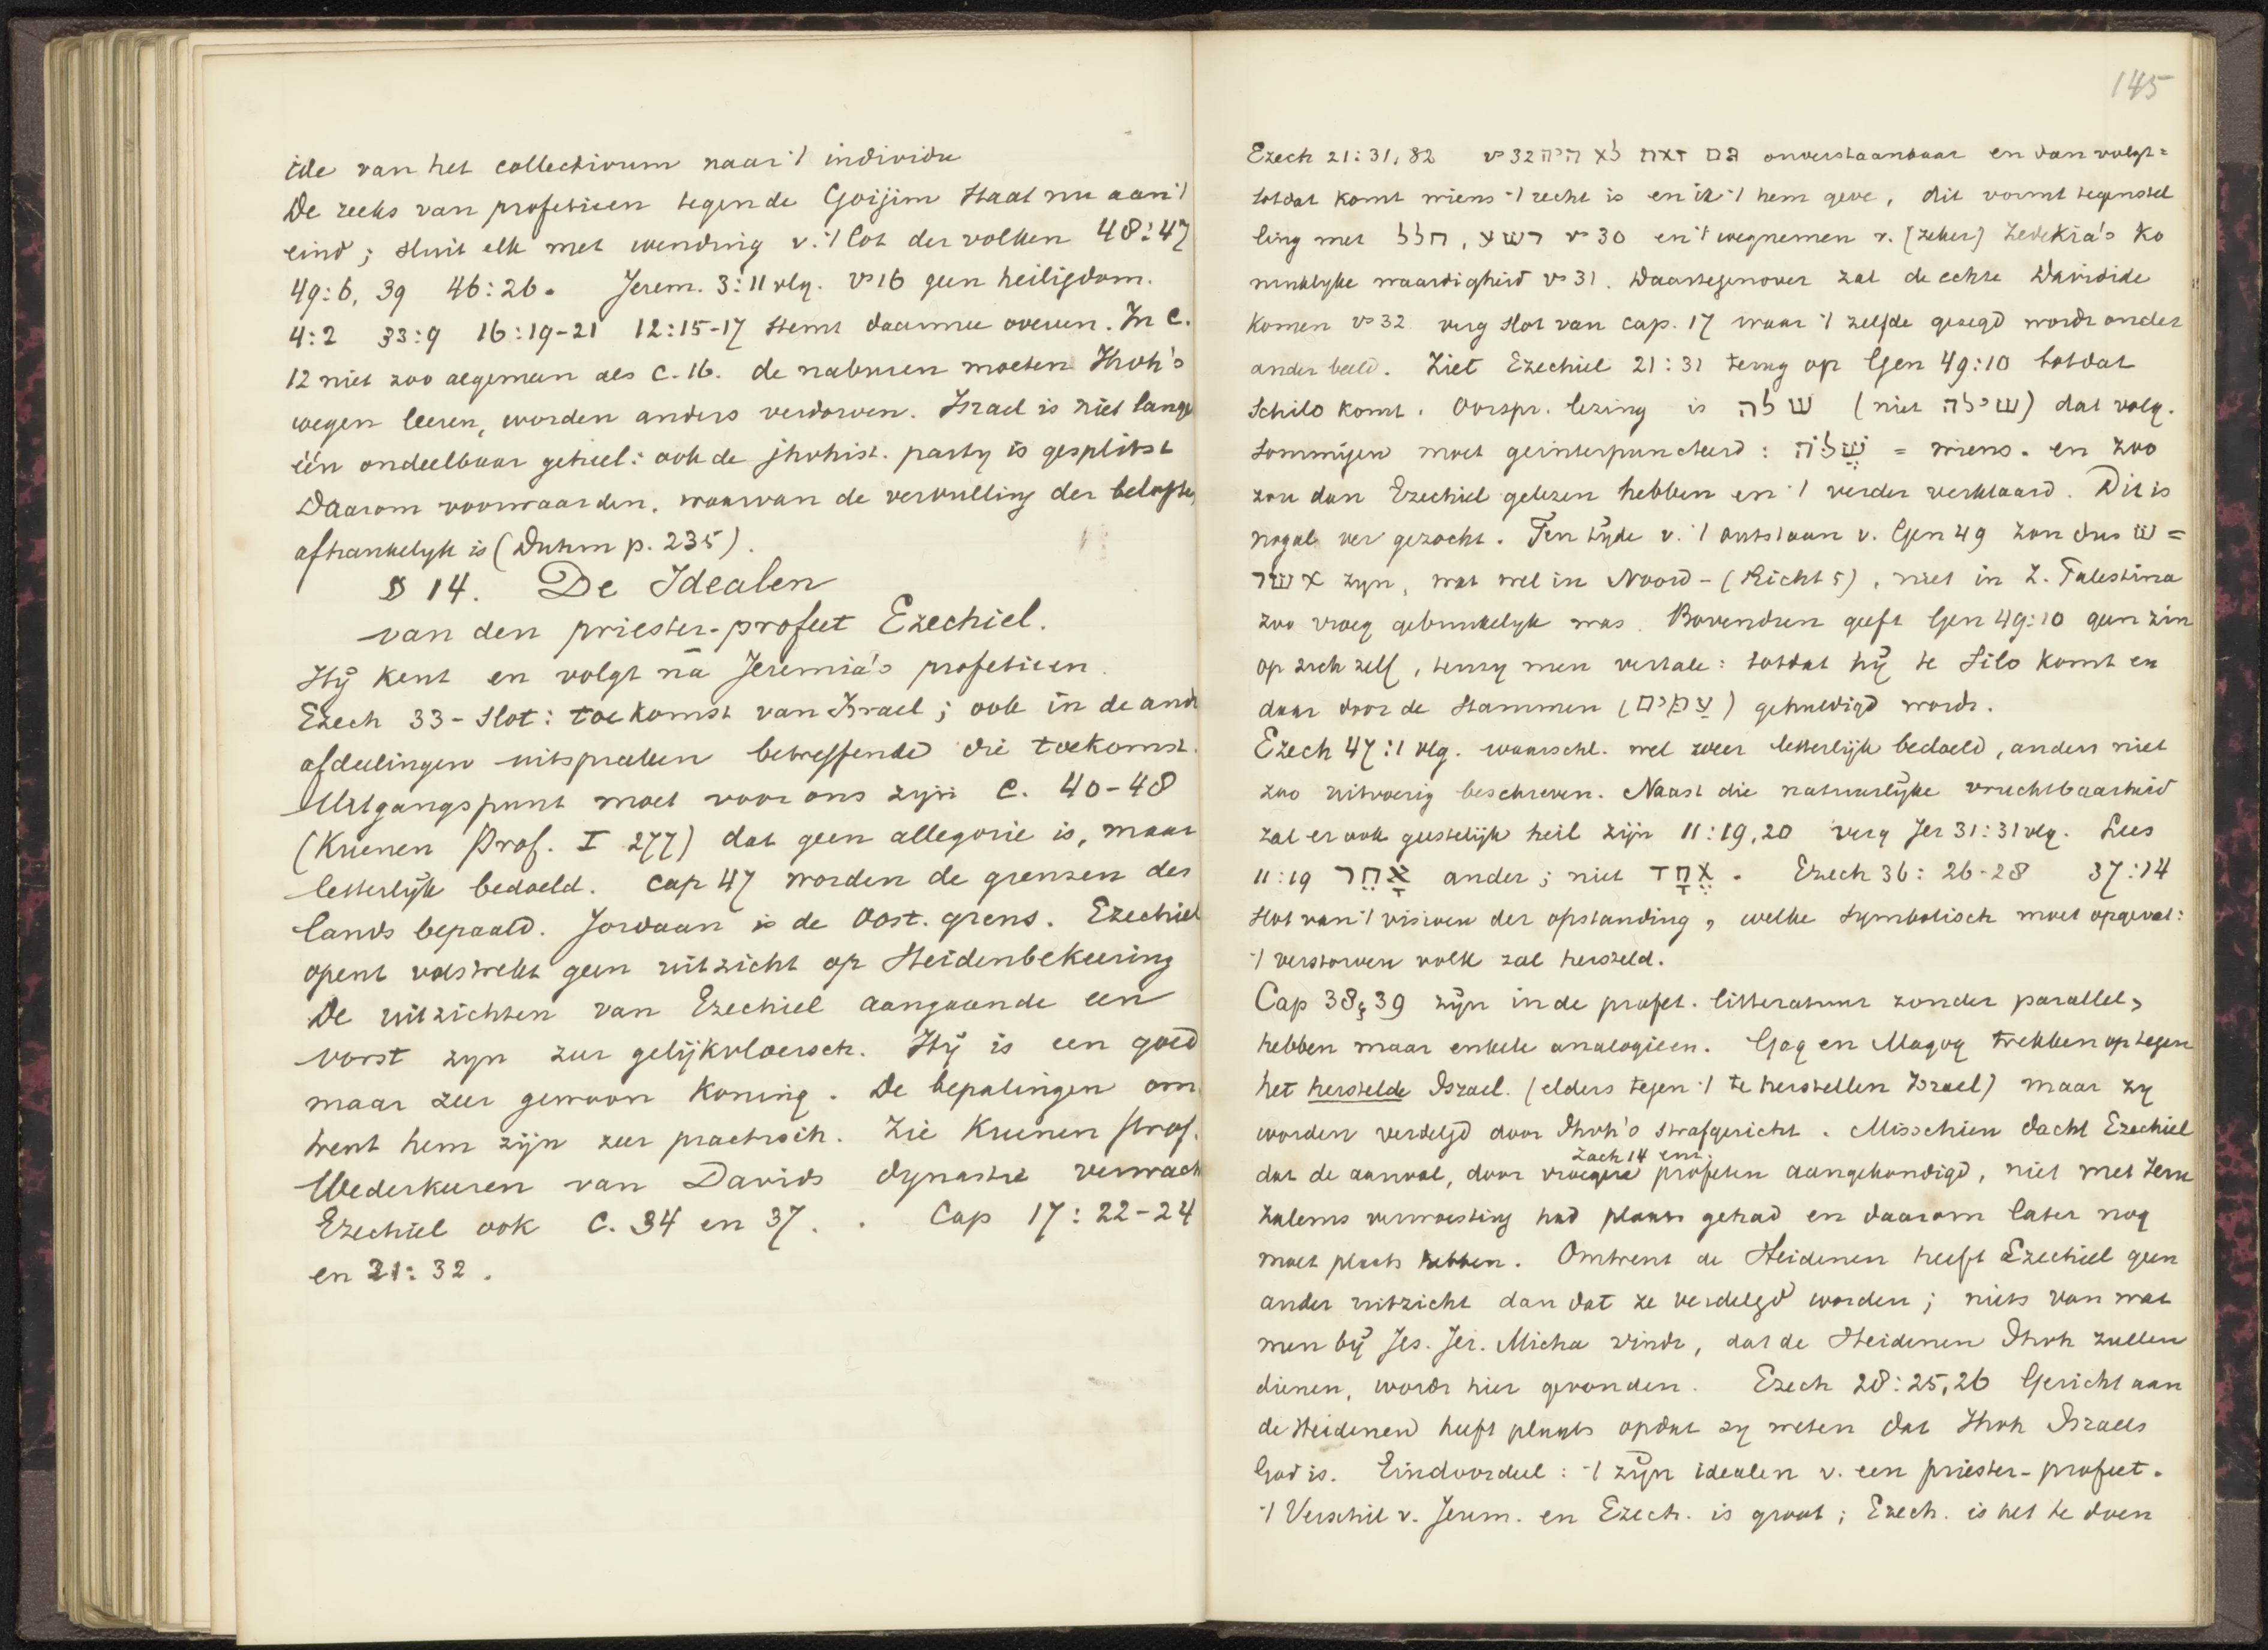 ide van het collectivum naar 't individu
De reeks van profetieen tegen de Goijim staat nu aan 't
eind; sluit elk met wending v. 't lot der volken 48:47
49:6, 39 46:26. Jerem. 3:11 vlg. vs 16 geen heiligdom.
4:2 33:9 16:19-21 12:15-17 stemt daarmee overeen. In C.
12 niet zoo algemeen als C. 16. de naburen moeten Jhvh's
wegen leeren, worden anders verdorven. Israel is niet lange
één ondeelbaar geheel: ook de jhvhist. party is gesplitst
Daarom voorwaarden, waarvan de vervulling der belofte
afhankelyk is (Duhm p. 235).
§ 14. De Idealen
van den priester-profeet Ezechiel.
Hÿ kent en volgt na Jeremia's profetieen.
Ezech 33 - slot: toekomst van Israel; ook in de and
afdeelingen uitspraken betreffende die toekomst.
Uitgangspunt moet voor ons zijn C. 40-48
(Kuenen Prof. I 277) dat geen allegorie is, maar
letterlÿk bedoeld. Cap 47 worden de grenzen des
lands bepaald. Jordaan is de Oost. grens. Ezechiel
opent volstrekt geen uitzicht op Heidenbekeering
De uitzichten van Ezechiel aangaande een
vorst zyn zeer gelijkvloersch. Hÿ is een goed
maar zeer gewoon koning. De bepalingen om
trent hem zijn zeer practisch. Zie Kuenen prof.
Wederkeeren van Davids dynastie verwach
Ezechiel ook C. 34 en 37. . Cap 17:22-24
en 21:32.
145
Ezech 21:31, 32 vs 32 גם זאת לא היה onverstaanbaar en dan volgt:
totdat komt wiens 't recht is en ik 't hem geve, dit vormt tegenstel
ling met חלל, רשע vs 30 en 't wegnemen v. (zeker) Zedekia's ko
ninklyke waardigheid vs 31. Daartegenover zal de echte Davidide
komen vs 32 verg slot van cap. 17 waar 't zelfde gezegd wordt onder
ander beeld. Ziet Ezechiel 21:31 terug op Gen 49:10 totdat
Schilo komt. Oorspr. lezing is שלה (niet שילה) dat volg.
sommigen moet geinterpuncteerd: שֶׁלֹּה = wiens. en zoo
zou dan Ezechiel gelezen hebben en 't verder verklaard. Dit is
nogal ver gezocht. Ten tÿde v. 't ontstaan v. Gen 49 zou dus ש =
אשר zyn, wat wel in Noord- (Richt 5), niet in Z. Palestina
zoo vroeg gebruikelyk was. Bovendien geeft Gen 49:10 geen zin
op zich zelf, tenzy men vertale: totdat hÿ te Silo komt en
daar door de stammen (עַמִּים) gehuldigd wordt.
Ezech 47:1 vlg. waarschl. wel zeer letterlijk bedoeld, anders niet
zoo uitvoerig beschreven. Naast die natuurlÿke vruchtbaarheid
zal er ook geestelijk heil zijn 11:19, 20 verg Jer 31:31 vlg. Lees
11:19 אַחֵר ander; niet אֶחָד. Ezech 36:26-28 37:14
slot van 't visioen der opstanding, welke symbolisch moet opgevat:
't verstorven volk zal hersteld.
Cap 38 & 39 zÿn in de profet. litteratuur zonder parallel,
hebben maar enkele analogieen. Gog en Magog trekken op tegen
het herstelde Israel. (elders tegen 't te herstellen Israel) maar zy
worden verdelgd door Jhvh's strafgericht. Misschien dacht Ezechiel
Zach 14 em.
dat de aanval, door vroegere profeten aangekondigd, niet met Jeru
zalems verwoesting had plaats gehad en daarom later nog
moet plaats hebben. Omtrent de Heidenen heeft Ezechiel geen
ander uitzicht dan dat ze verdelgd worden; niets van wat
men bÿ Jes. Jer. Micha vindt, dat de Heidenen Jhvh zullen
dienen, wordt hier gevonden. Ezech 28:25, 26 Gericht aan
de Heidenen heeft plaats opdat zy weten dat Jhvh Israels
God is. Eindoordeel: 't zÿn idealen v. een priester-profeet.
't Verschil v. Jerem. en Ezech. is groot; Ezech. is het te doen